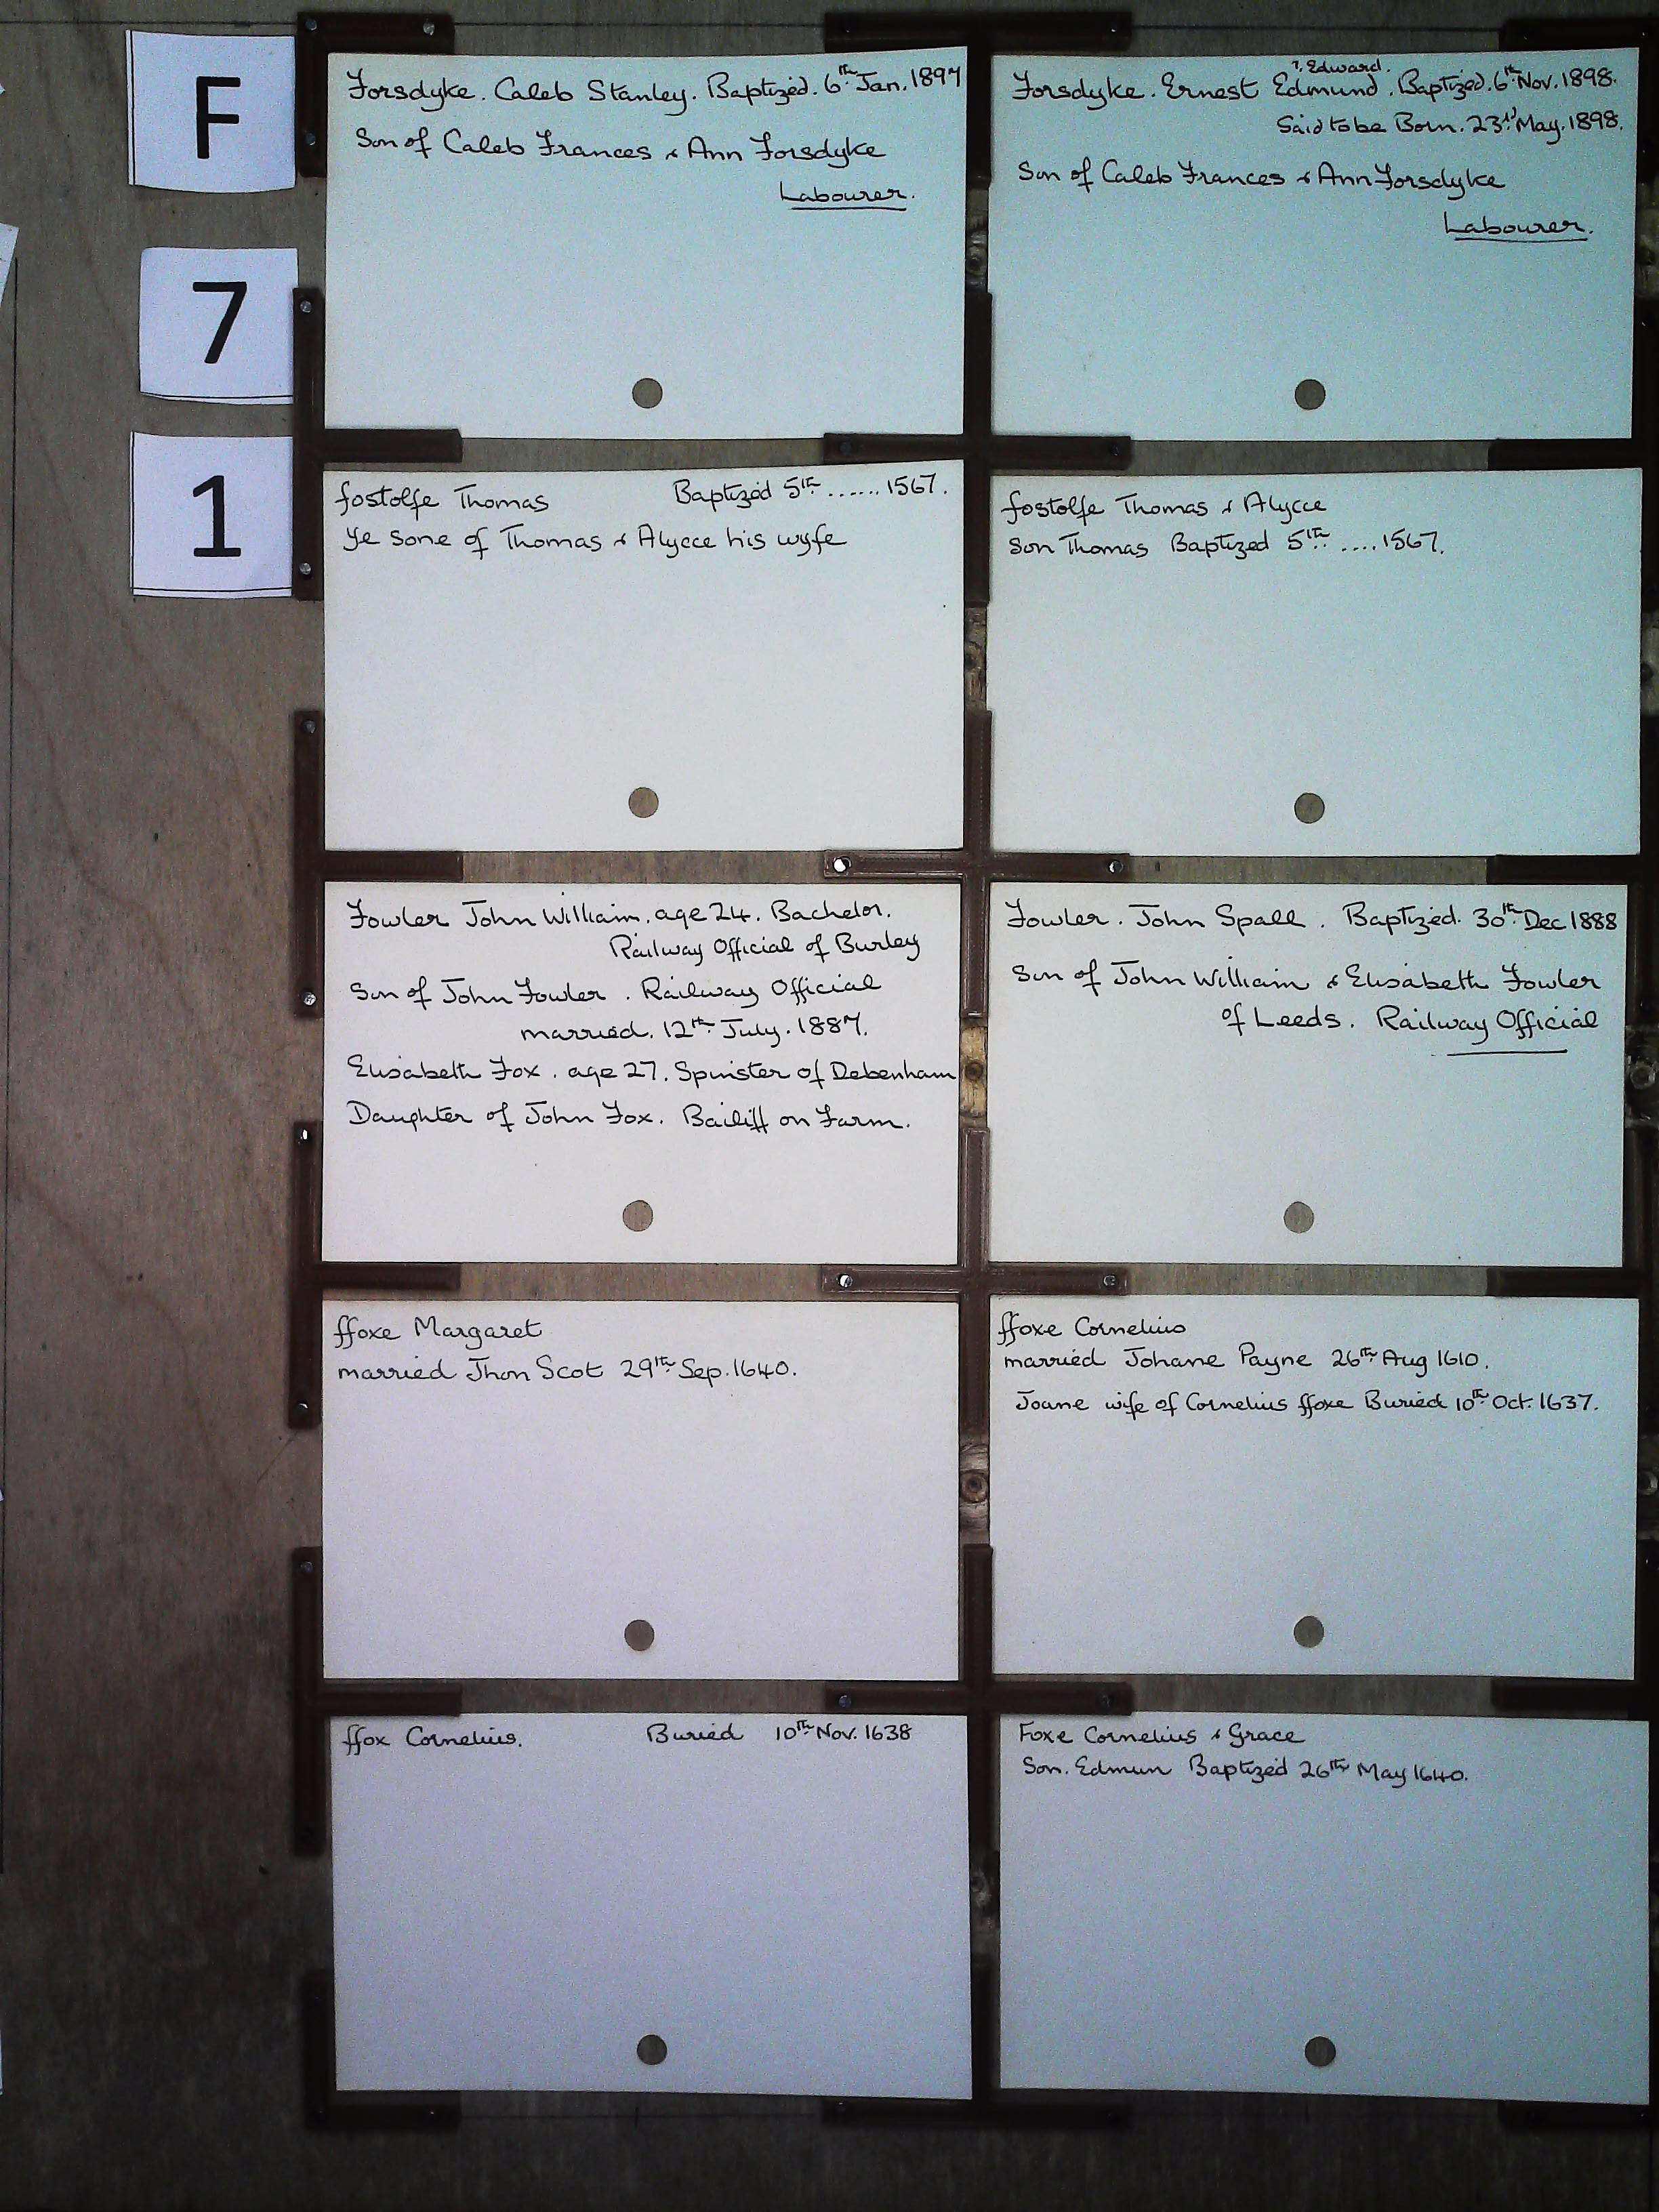 F
7
1
Forsdyke. Caleb Stanley. Baptized. 6th Jan. 1897
Son of Caleb Frances & Ann Forsdyke
Labourer.
?. Edward.
Forsdyke. Ernest Edmund. Baptized. 6th Nov. 1898.
Said to be Born. 23rd May. 1898.
Son of Caleb Frances & Ann Forsdyke
Labourer.
fostolfe Thomas Baptized 5th ...... 1567.
ye sone of Thomas & Alycce his wyfe
fostolfe Thomas & Alycce
Son Thomas Baptized 5th .... 1567.
Fowler John William. age 24. Bachelor.
Railway Official of Burley
Son of John Fowler. Railway Official
married. 12th July. 1887.
Elisabeth Fox. age 27. Spinster of Debenham
Daughter of John Fox. Bailiff on Farm.
Fowler. John Spall. Baptized. 30th Dec 1888
Son of John William & Elisabeth Fowler
of Leeds. Railway Official
ffoxe Margaret
married Jhon Scot 29th Sep. 1640.
ffoxe Cornelius
married Johane Payne 26th Aug 1610.
Joane wife of Cornelius ffoxe Buried 10th Oct. 1637.
ffox Cornelius. Buried 10th Nov. 1638
Foxe Cornelius & Grace
Son. Edmun Baptized 26th May 1640.